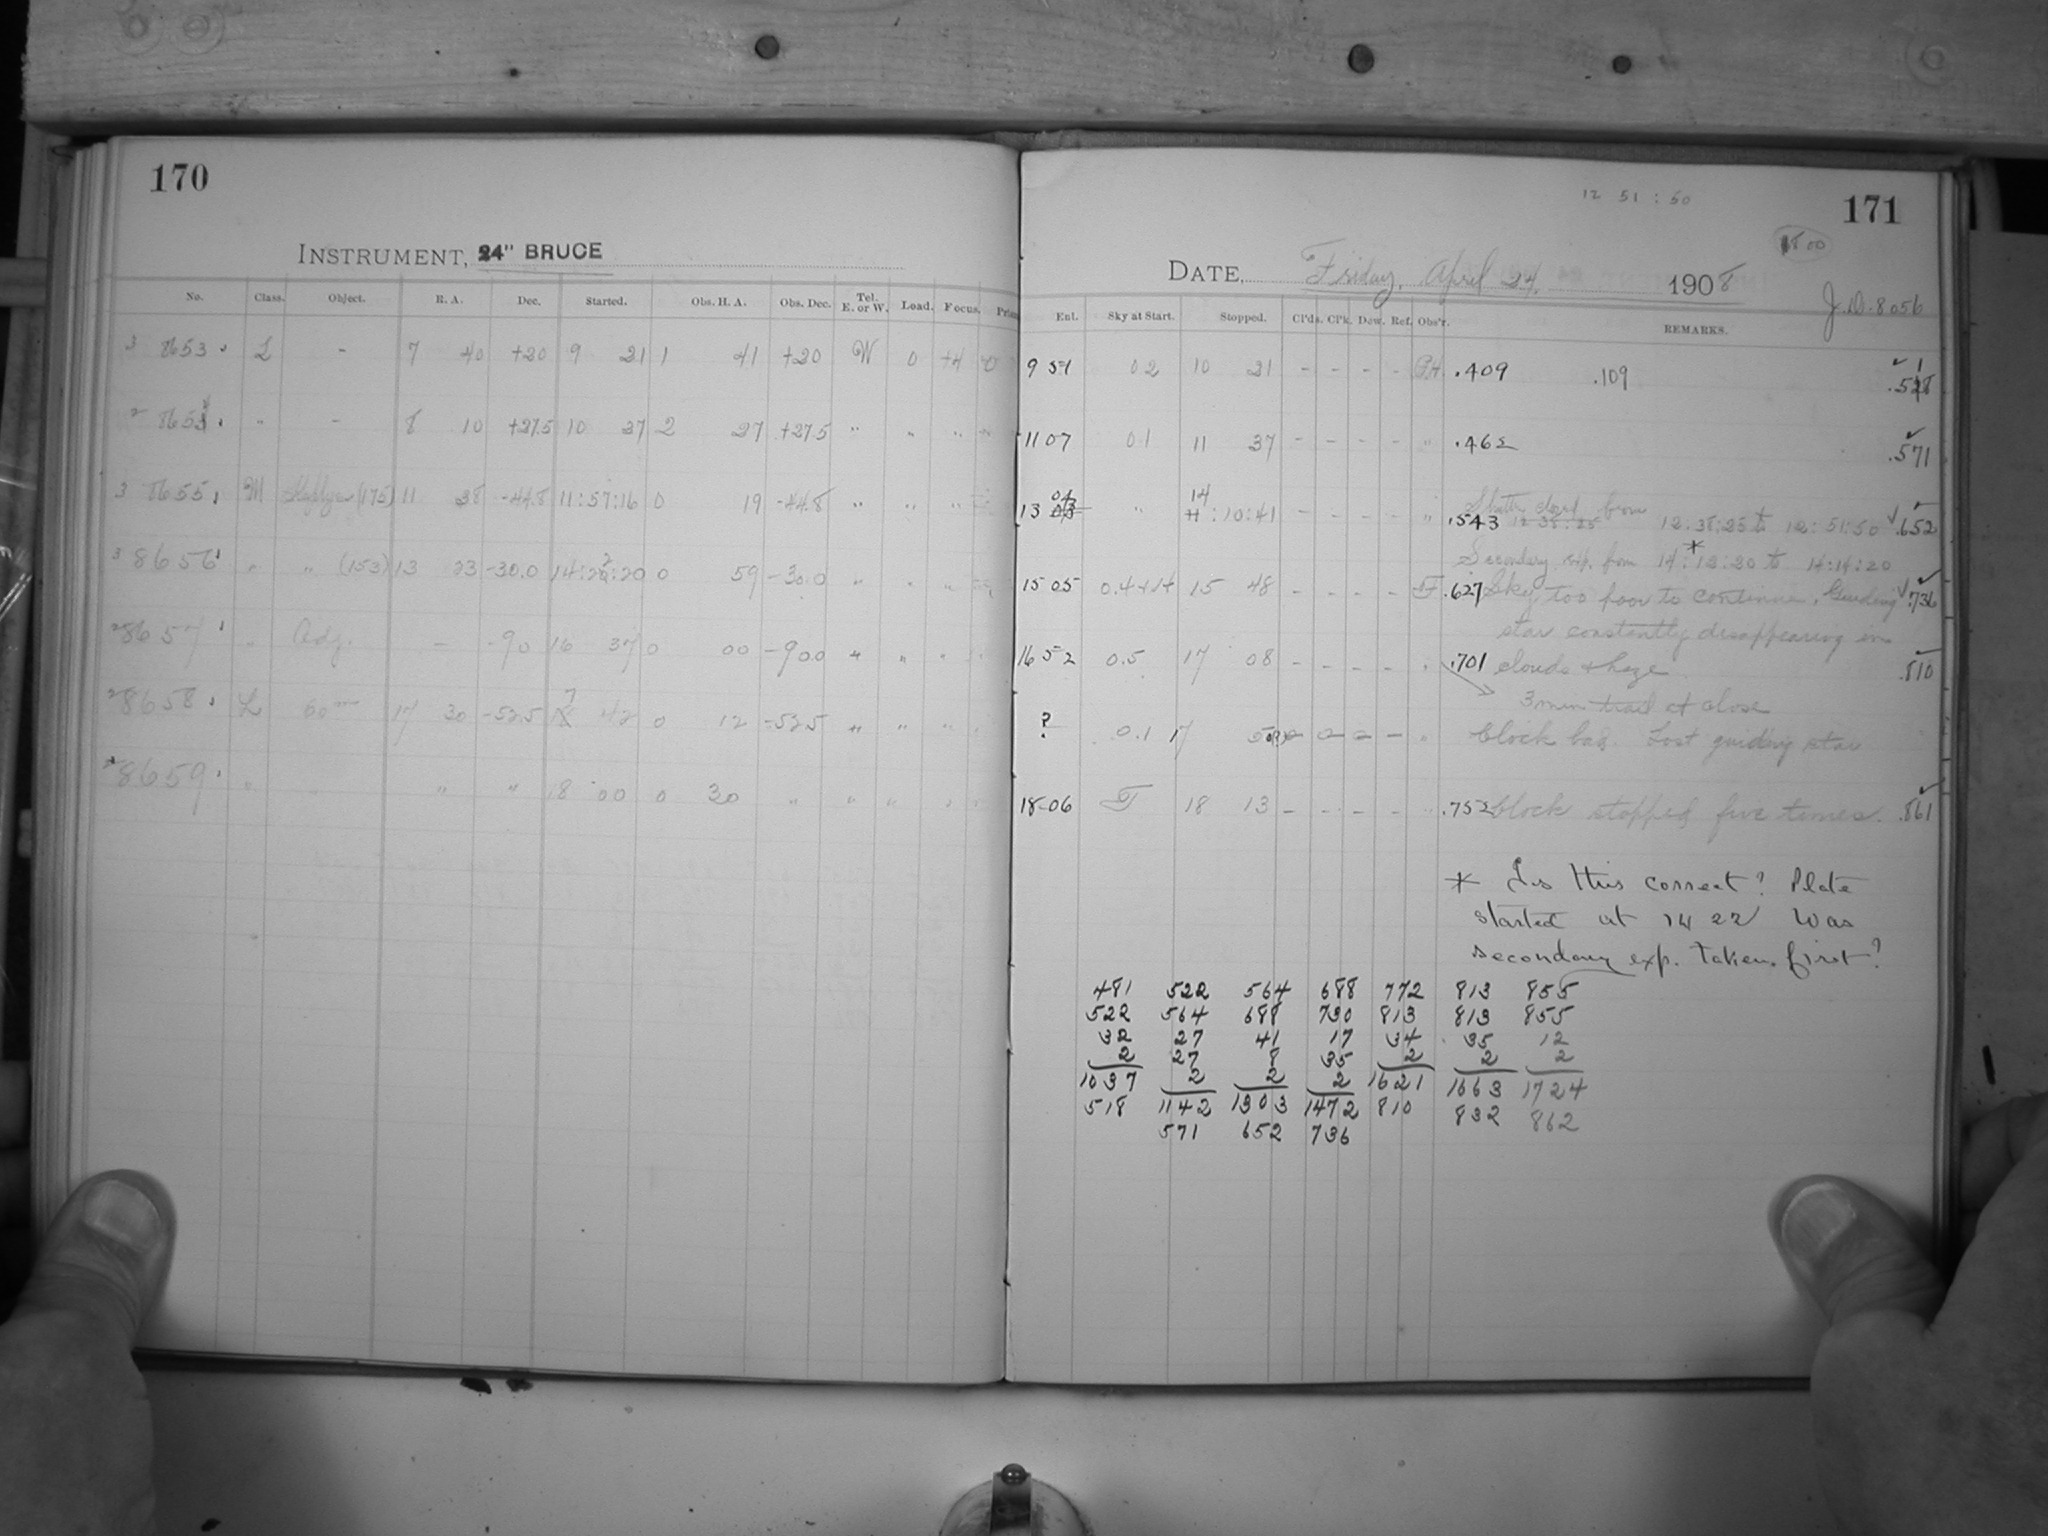 170
INSTRUMENT, 24" BRUCE
No. Class. Object. R. A. Dec. Started. Obs. H. A. Obs. Dec. Tel. E. or W. Load. Focus.
3 8653 L - 7 40 +20 9 21 1 41 +20 W 0 +4 0
2 865 " - 8 10 +27.5 10 37 2 27 +27.5 " " " "
3 8655 M (175) 11 38 -44.8 11:57:16 0 19 -44.8 " " "
3 8656 " " (153) 13 23 -30.0 14:22:20 0 59 -30.0 " " "
2 8657 " Adj. - -90 16 37 0 00 -90.0 " " " "
2 8658 L 60m 17 30 -52.5 17 42 0 12 -52.5 " " "
8659 " " " " 18 00 0 30 " " " " "
12 51 : 50
171
1800
DATE, Friday, April 24, 1908
J.D. 8056
Ent. Sky at Start. Stopped. Cl'ds. Cl'k. Dew. Ref. Obs'r. REMARKS.
9 51 0 2 10 21 - - - - .409 .109 .518
11 07 0.1 11 37 - - - - " .462 .571
13 04 " 14:10:41 - - - - " .543 Shutter closed from 12:38:25 to 12:51:50 .652
Secondary exp. from 14:12:20 to 14:14:20
15 05 0.4+H 15 48 - - - - F .627 Sky too poor to continue. Guiding .736
star constantly disappearing in
16 52 0.5 17 08 - - - - " .701 clouds & haze .810
3 min trail at close
? 0.1 17 - - - - " Clock bad. Lost guiding star
18-06 F 18 13 - - - - " .752 Clock stopped five times. .861
* Is this correct? Plate
started at 14 22 Was
secondary exp. taken first?
481 522 564 688 772 813 855
522 564 688 730 813 813 855
32 27 41 17 34 35 12
2 27 8 35 2 2 2
1037 2 2 2 1621 1663 1724
518 1142 1303 1472 810 832 862
571 652 736